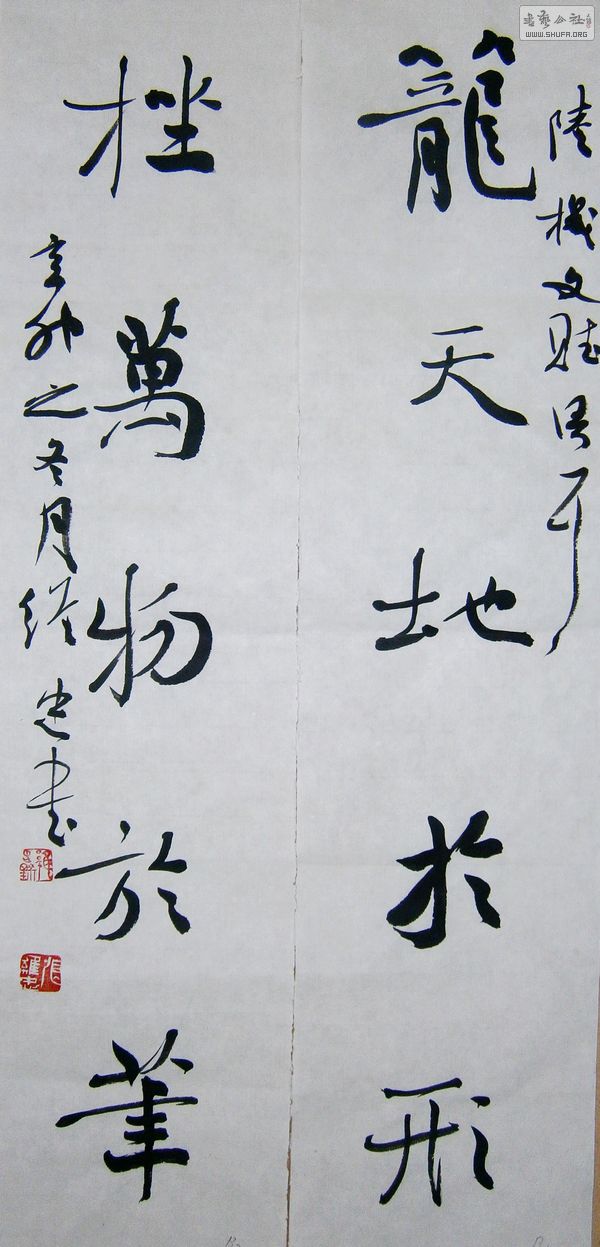 書藝公社
WWW.SHUFA.ORG
陸機文賦
籠天地於形
挫萬物於筆
辛卯之冬月维忠书